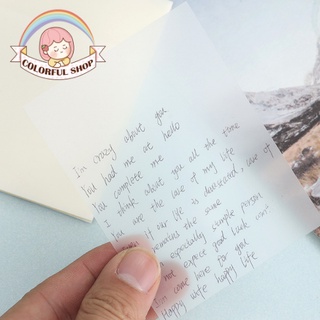 COLORFUL SHOP
I'm crazy about you.
You had me at hello
You complete me
I think about you all the time
You are the love of my life
if our life is downward, care of
remains the same
an especially simple person
not expect good luck can't
I'm come here for you
Happy wife happy life